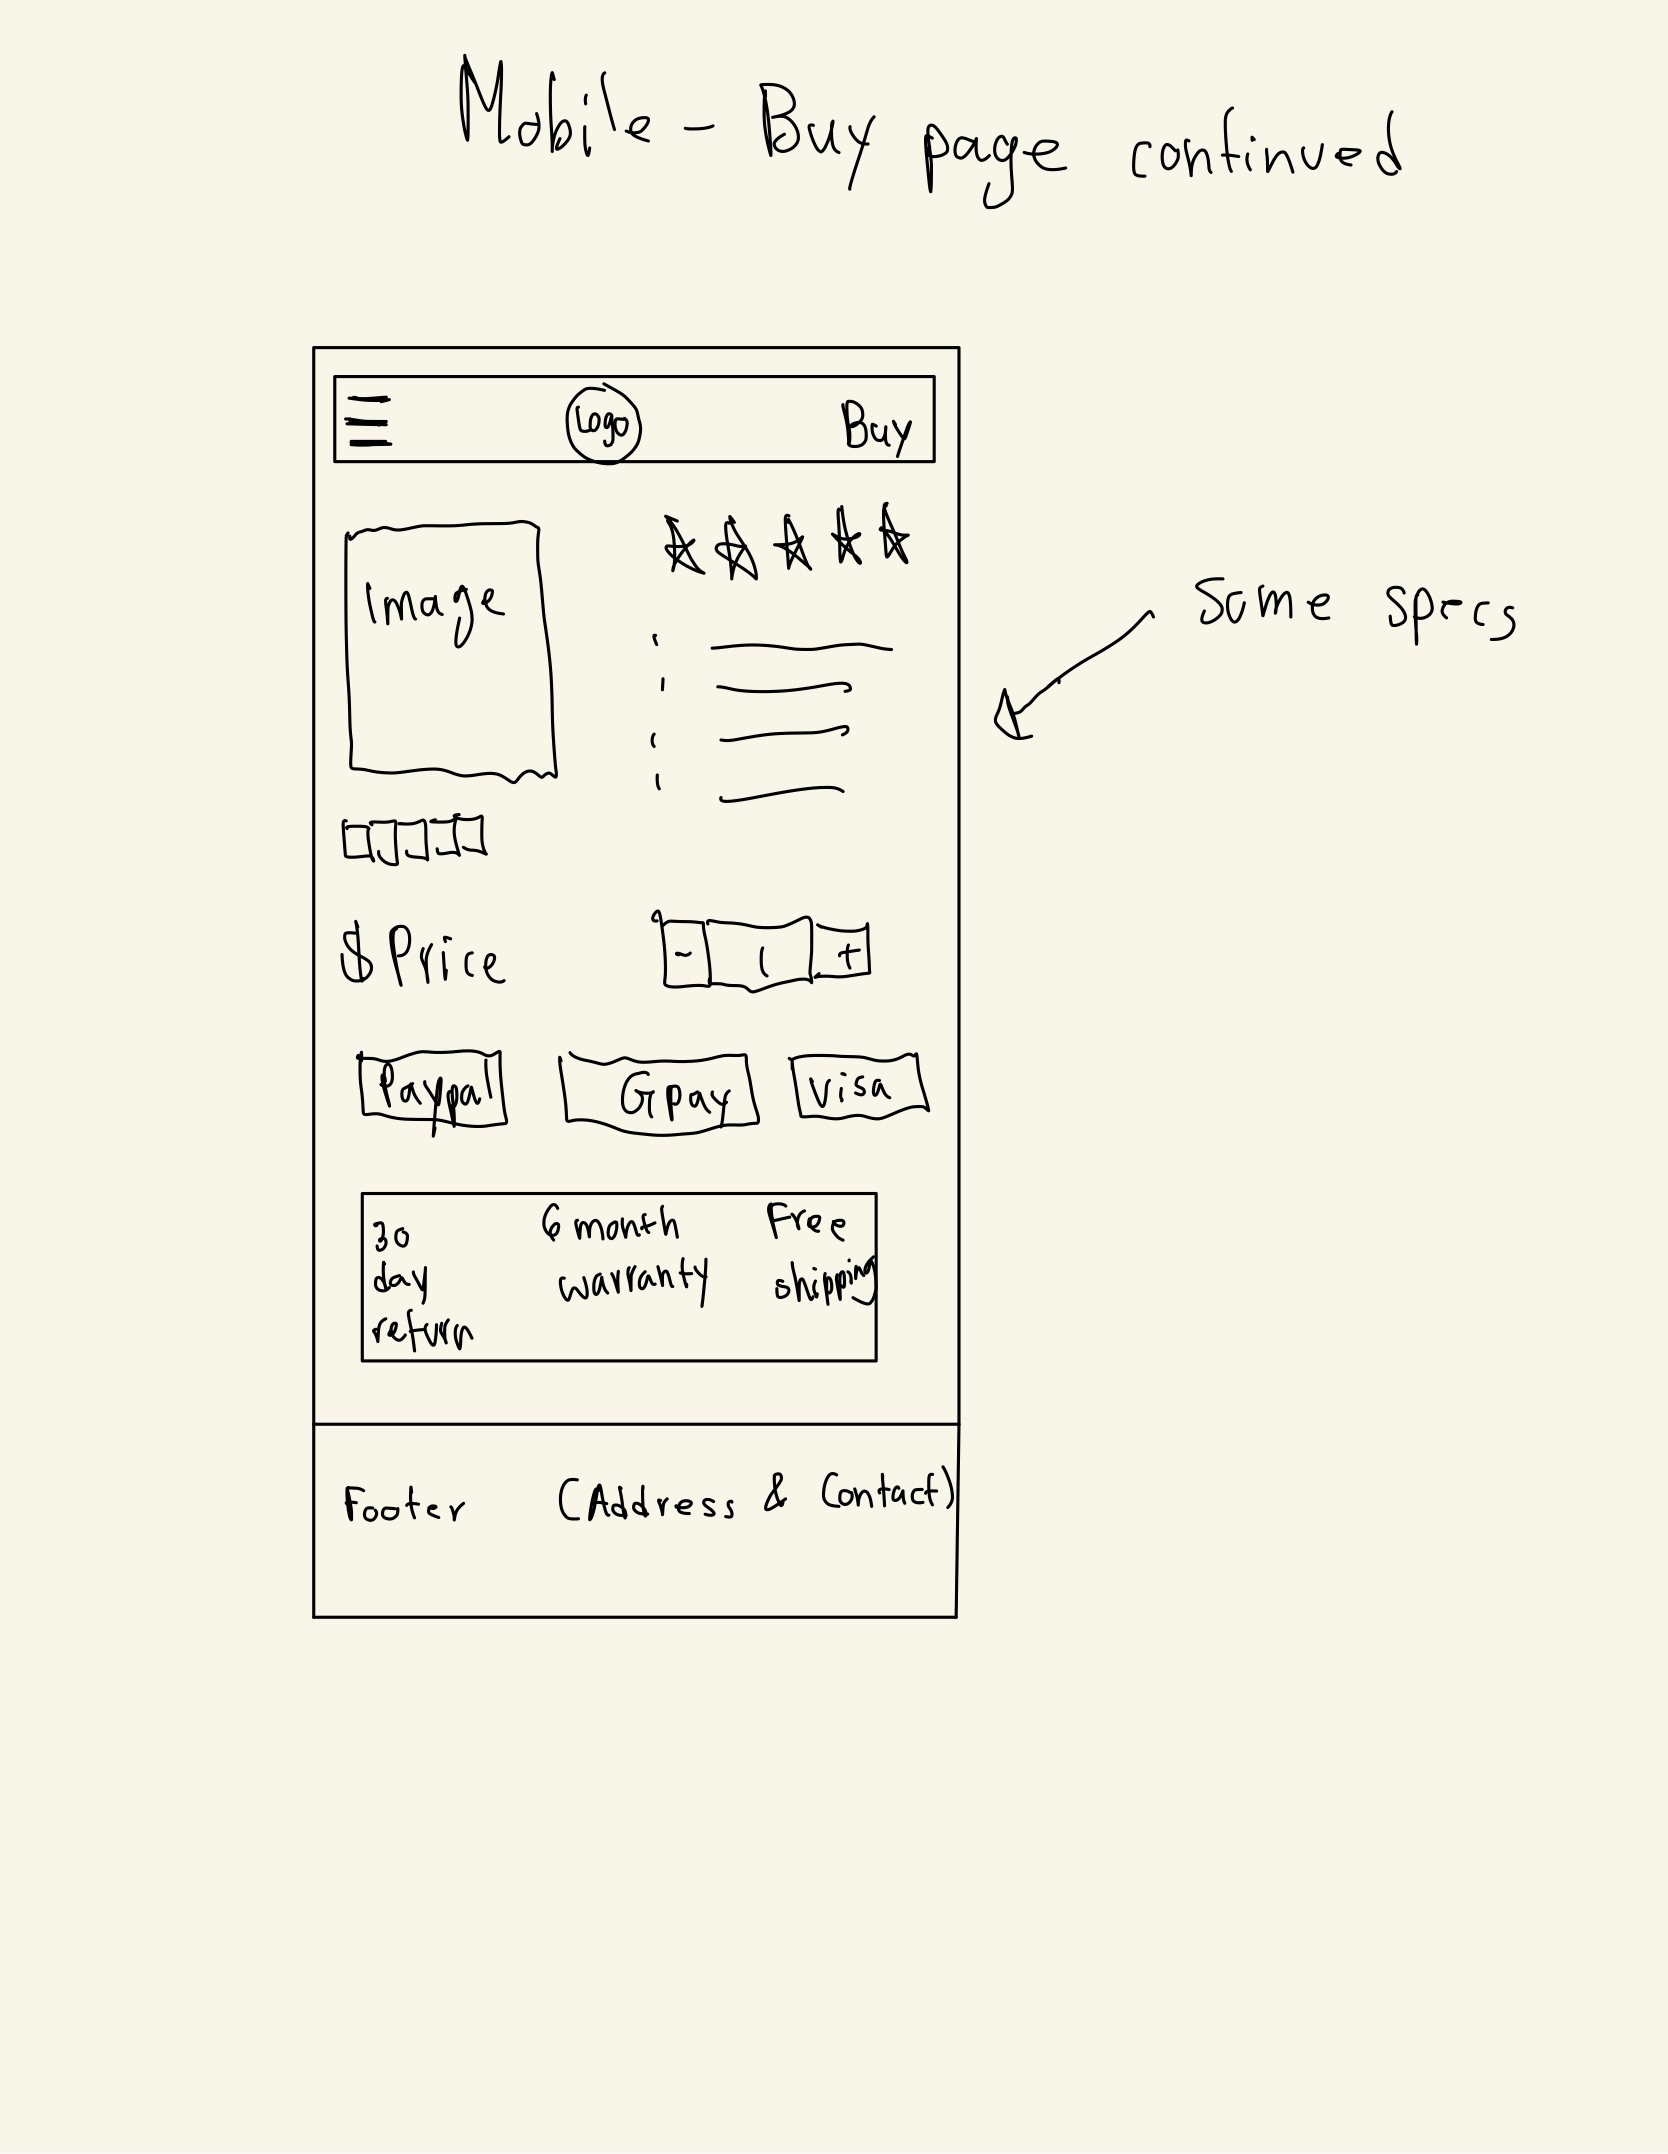 Mobile - Buy page continued
Logo
Buy
Image
Some specs
$ Price
- 1 +
Paypal
G pay
Visa
30
day
return
6 month
warranty
Free
shipping
Footer (Address & Contact)